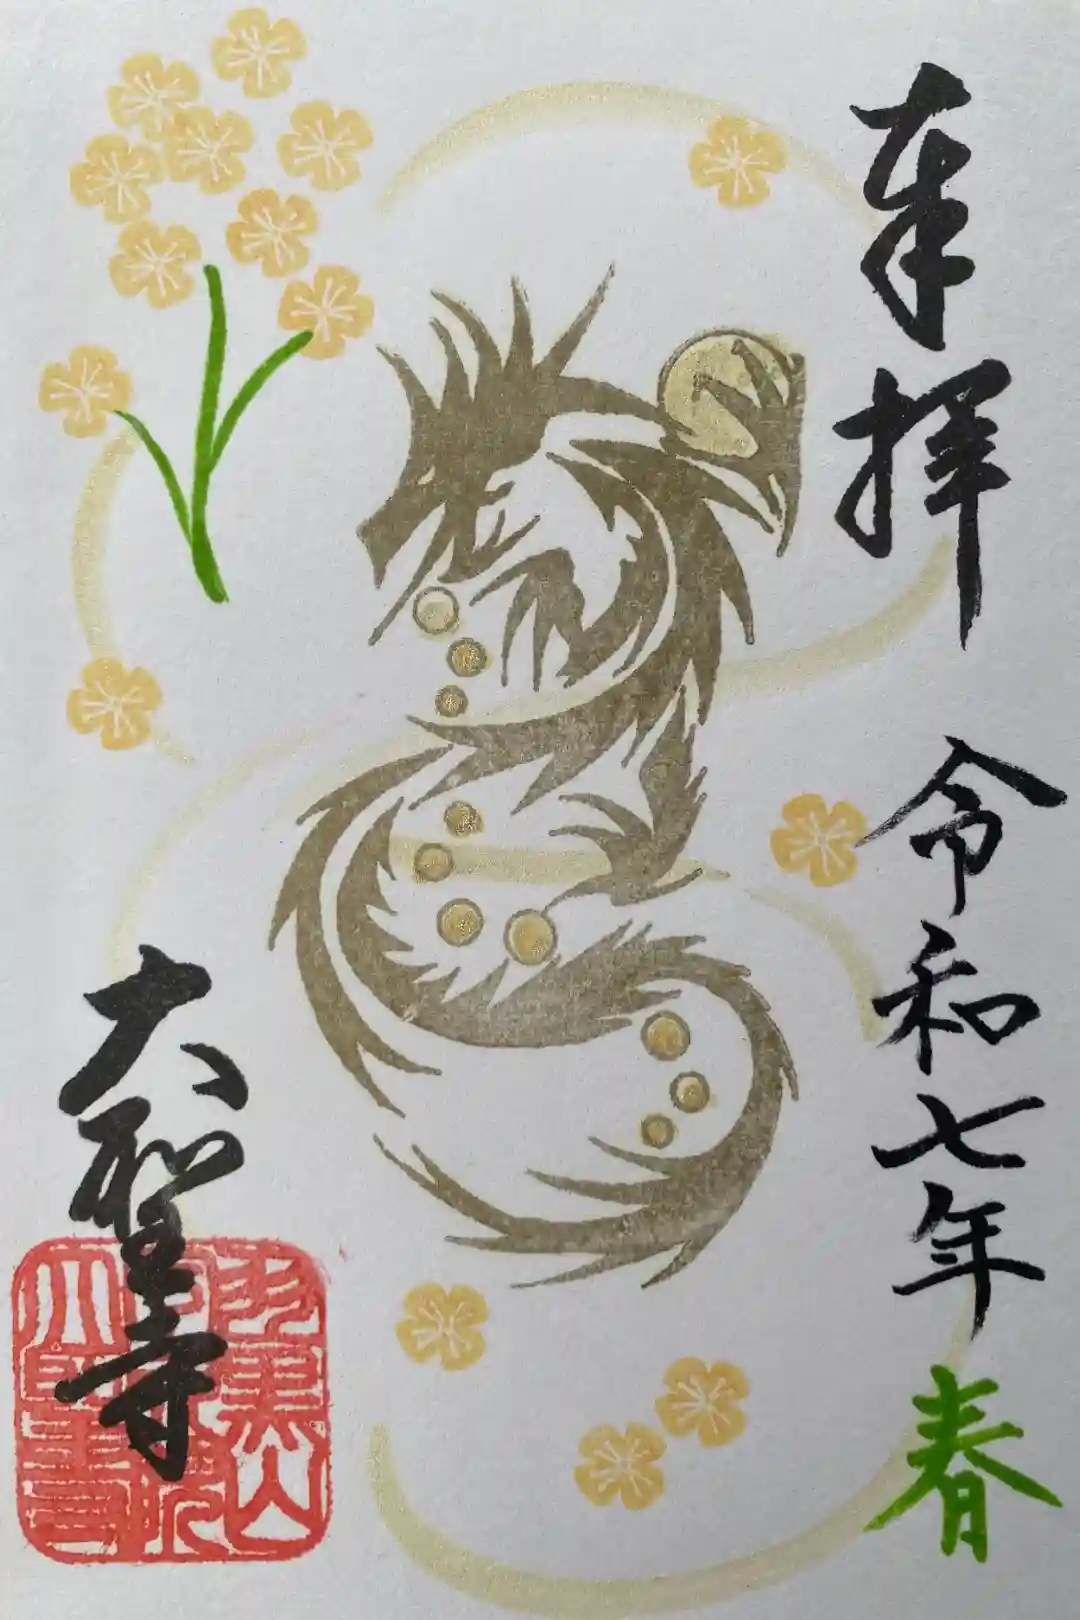 奉拝
令和七年
春
大聖寺